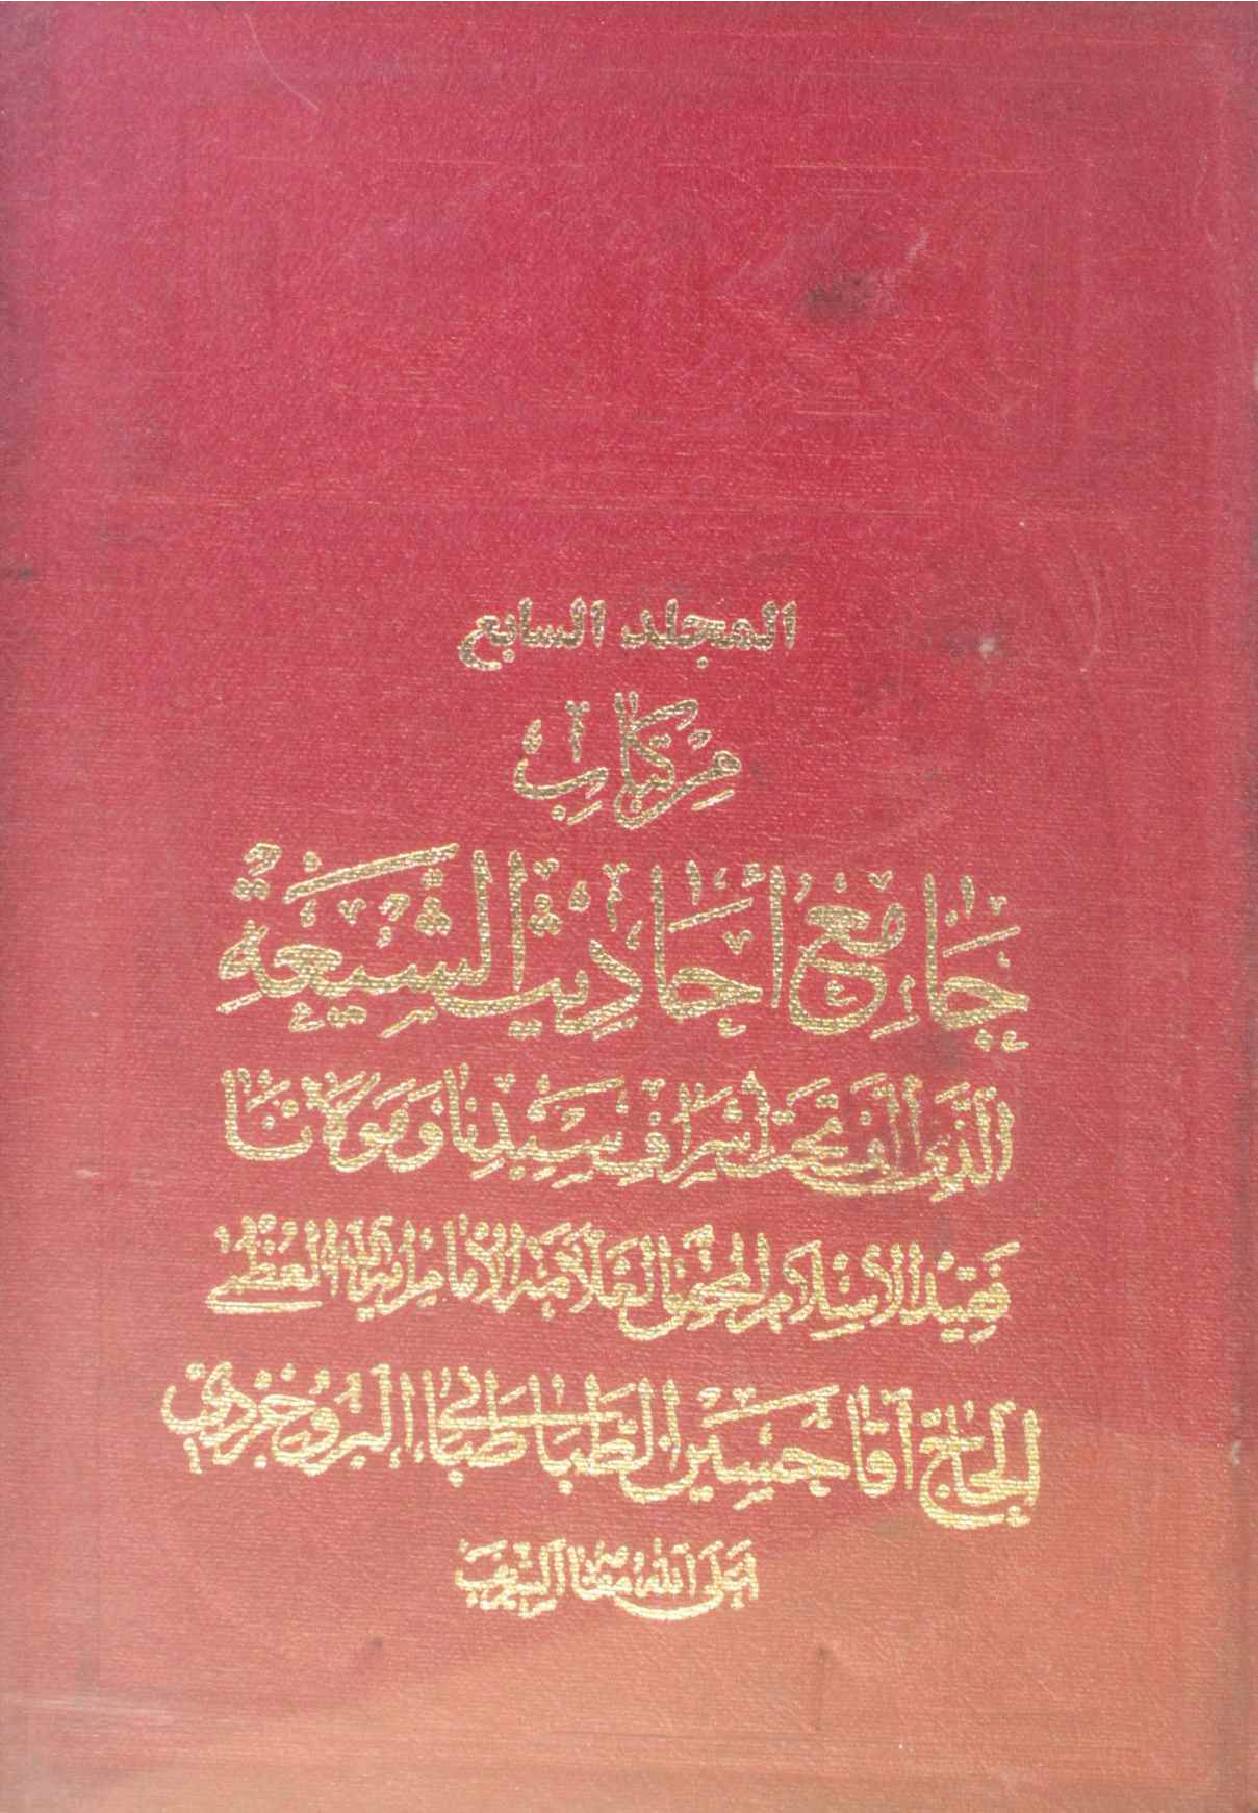 المجلد السابع
من كتاب
جَامِعُ أَحَادِيثِ الشِّيعَةِ
الَّذي أُلِّفَ تحتَ إشرافِ سَيِّدِنا وَمَولانا
فَقيدِ الإسلامِ المحقق العلّامة الإمام آية الله العُظمى
الحَاجّ آقا حُسَين الطَّباطَبائي البُروجردي
أعلى الله مقامه الشريف